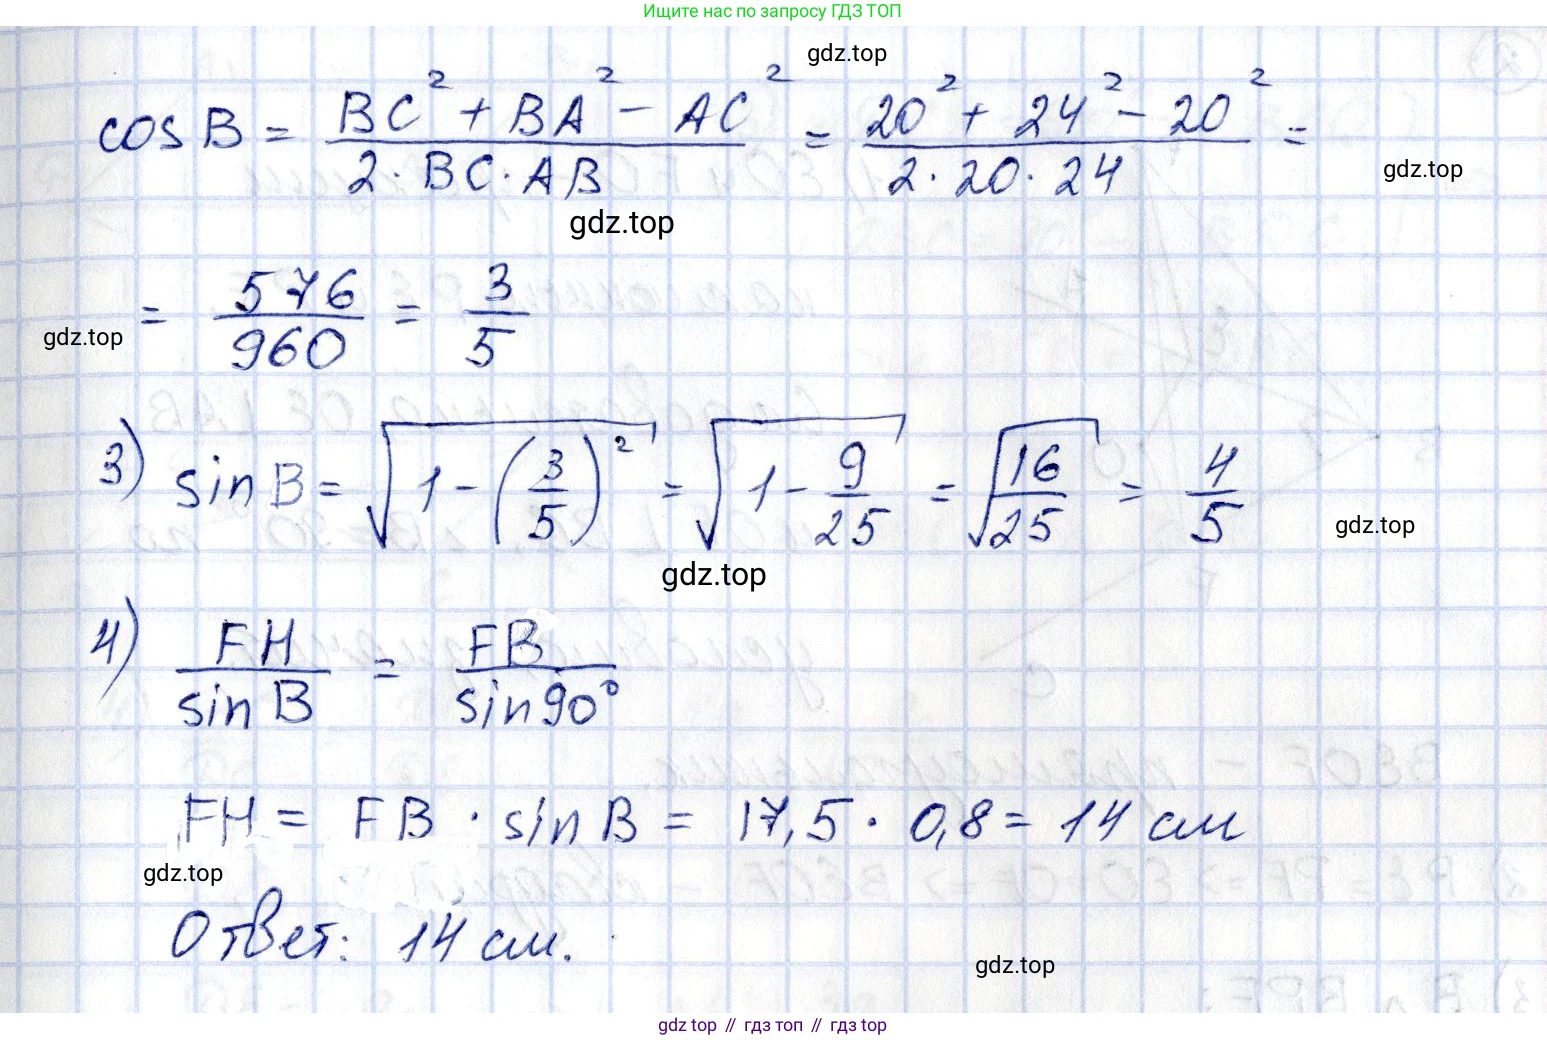 Ищите нас по запросу ГДЗ ТОП
gdz.top
cos B = (BC² + BA² − AC²) / (2 · BC · AB) = (20² + 24² − 20²) / (2 · 20 · 24) =
gdz.top
gdz.top
= 576/960 = 3/5
gdz.top
3) sin B = √(1 − (3/5)²) = √(1 − 9/25) = √(16/25) = 4/5
gdz.top
gdz.top
4) FH / sin B = FB / sin 90°
FH = FB · sin B = 17,5 · 0,8 = 14 см
gdz.top
Ответ: 14 см.
gdz.top
gdz top // гдз топ // gdz top